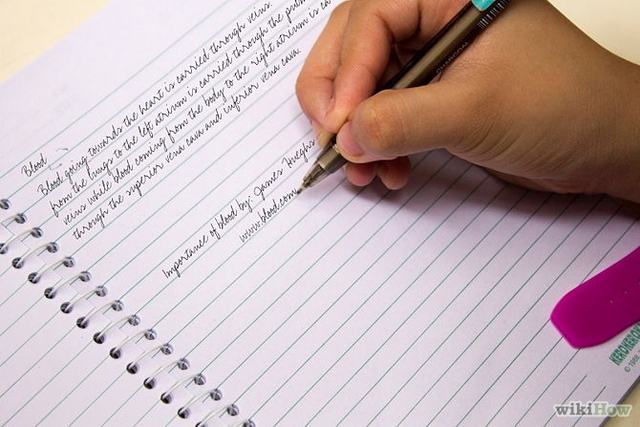 Blood
Blood going towards the heart is carried through veins.
from the lungs to the left atrium is carried through the pulm
veins while blood coming from the body to the right atrium is ca
through the superior vena cava and inferior vena cava.
Importance of blood by: James Hueghs
www.blood.com
KEROKERO
© 199
wikiHow